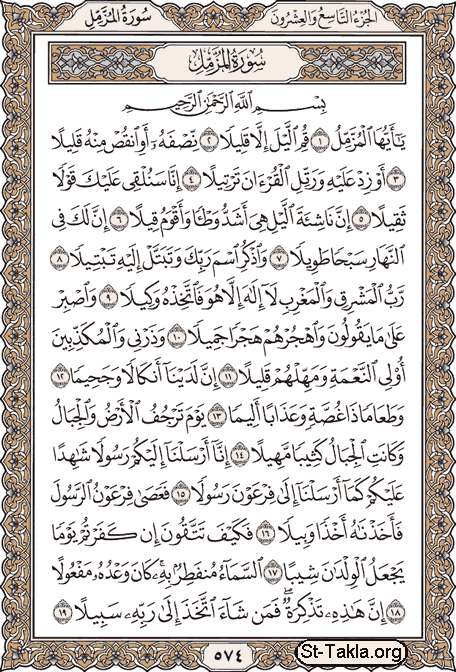 سُورَةُ المُزَّمِّلِ الجُزْءُ التَّاسِعُ وَالعِشْرُونَ
سُورَةُ المُزَّمِّلِ
بِسْمِ اللَّهِ الرَّحْمَٰنِ الرَّحِيمِ
يَٰٓأَيُّهَا الْمُزَّمِّلُ ١ قُمِ الَّيْلَ إِلَّا قَلِيلًا ٢ نِّصْفَهُۥٓ أَوِ انقُصْ مِنْهُ قَلِيلًا
٣ أَوْ زِدْ عَلَيْهِ وَرَتِّلِ الْقُرْءَانَ تَرْتِيلًا ٤ إِنَّا سَنُلْقِى عَلَيْكَ قَوْلًا
ثَقِيلًا ٥ إِنَّ نَاشِئَةَ الَّيْلِ هِىَ أَشَدُّ وَطْـًٔا وَأَقْوَمُ قِيلًا ٦ إِنَّ لَكَ فِى
النَّهَارِ سَبْحًا طَوِيلًا ٧ وَاذْكُرِ اسْمَ رَبِّكَ وَتَبَتَّلْ إِلَيْهِ تَبْتِيلًا ٨
رَّبُّ الْمَشْرِقِ وَالْمَغْرِبِ لَآ إِلَٰهَ إِلَّا هُوَ فَاتَّخِذْهُ وَكِيلًا ٩ وَاصْبِرْ
عَلَىٰ مَا يَقُولُونَ وَاهْجُرْهُمْ هَجْرًا جَمِيلًا ١٠ وَذَرْنِى وَالْمُكَذِّبِينَ
أُو۟لِى النَّعْمَةِ وَمَهِّلْهُمْ قَلِيلًا ١١ إِنَّ لَدَيْنَآ أَنكَالًا وَجَحِيمًا ١٢
وَطَعَامًا ذَا غُصَّةٍ وَعَذَابًا أَلِيمًا ١٣ يَوْمَ تَرْجُفُ الْأَرْضُ وَالْجِبَالُ
وَكَانَتِ الْجِبَالُ كَثِيبًا مَّهِيلًا ١٤ إِنَّآ أَرْسَلْنَآ إِلَيْكُمْ رَسُولًا شَٰهِدًا
عَلَيْكُمْ كَمَآ أَرْسَلْنَآ إِلَىٰ فِرْعَوْنَ رَسُولًا ١٥ فَعَصَىٰ فِرْعَوْنُ الرَّسُولَ
فَأَخَذْنَٰهُ أَخْذًا وَبِيلًا ١٦ فَكَيْفَ تَتَّقُونَ إِن كَفَرْتُمْ يَوْمًا
يَجْعَلُ الْوِلْدَٰنَ شِيبًا ١٧ السَّمَآءُ مُنفَطِرٌۢ بِهِۦ ۚ كَانَ وَعْدُهُۥ مَفْعُولًا
١٨ إِنَّ هَٰذِهِۦ تَذْكِرَةٌ ۖ فَمَن شَآءَ اتَّخَذَ إِلَىٰ رَبِّهِۦ سَبِيلًا ١٩
٥٧٤
St-Takla.org